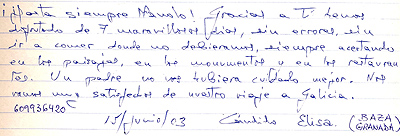 ¡Hasta siempre Manolo! Gracias a Ti hemos
disfrutado de 7 maravillosos días, sin errores, sin
ir a comer donde no debieramos, siempre acertando
en los paisajes, en los monumentos y en los restauran-
tes. Un padre no nos hubiera cuidado mejor. Nos
vamos muy satisfechos de nuestro viaje a Galicia.
609936420
15/Junio/03 Cándido Elisa. (BAZA GRANADA)